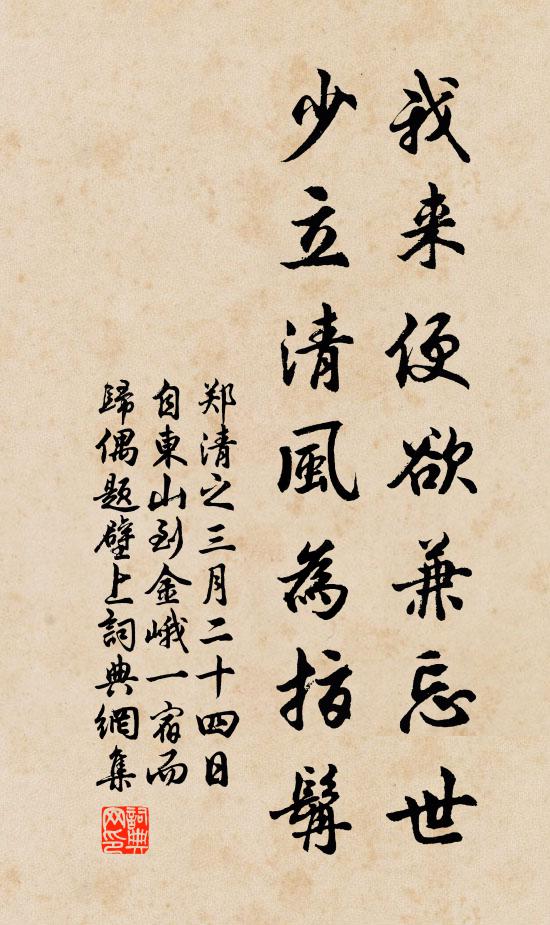 我来便欲兼忘世
少立清風為指髯
郑清之三月二十四日
自東山到金峨一宿而
歸偶题壁上詞典網集
詞典
网印